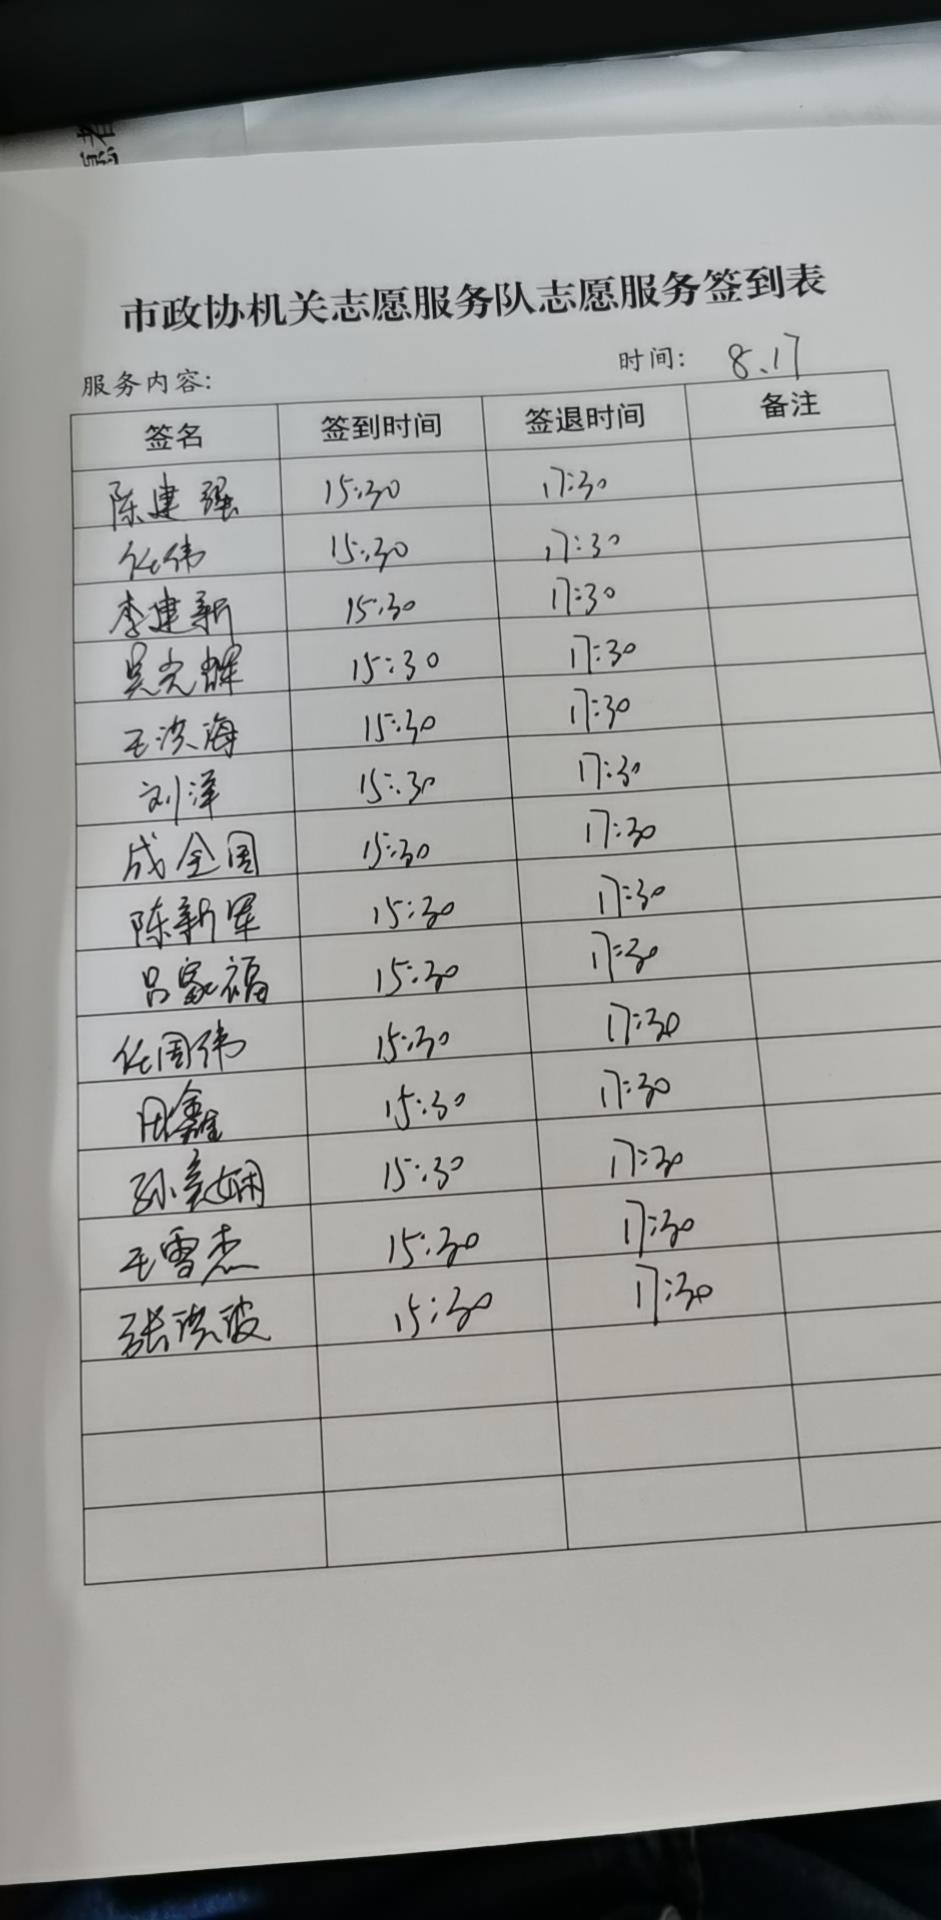 市政协机关志愿服务队志愿服务签到表
服务内容: 时间: 8.17
签名 签到时间 签退时间 备注
陈建强 15:30 17:30
任伟 15:30 17:30
李建新 15:30 17:30
吴光辉 15:30 17:30
王洪海 15:30 17:30
刘洋 15:30 17:30
成全国 15:30 17:30
陈新军 15:30 17:30
吕家福 15:30 17:30
任周伟 15:30 17:30
田鑫 15:30 17:30
孙 娴 15:30 17:30
王雪杰 15:30 17:30
张洪波 15:30 17:30